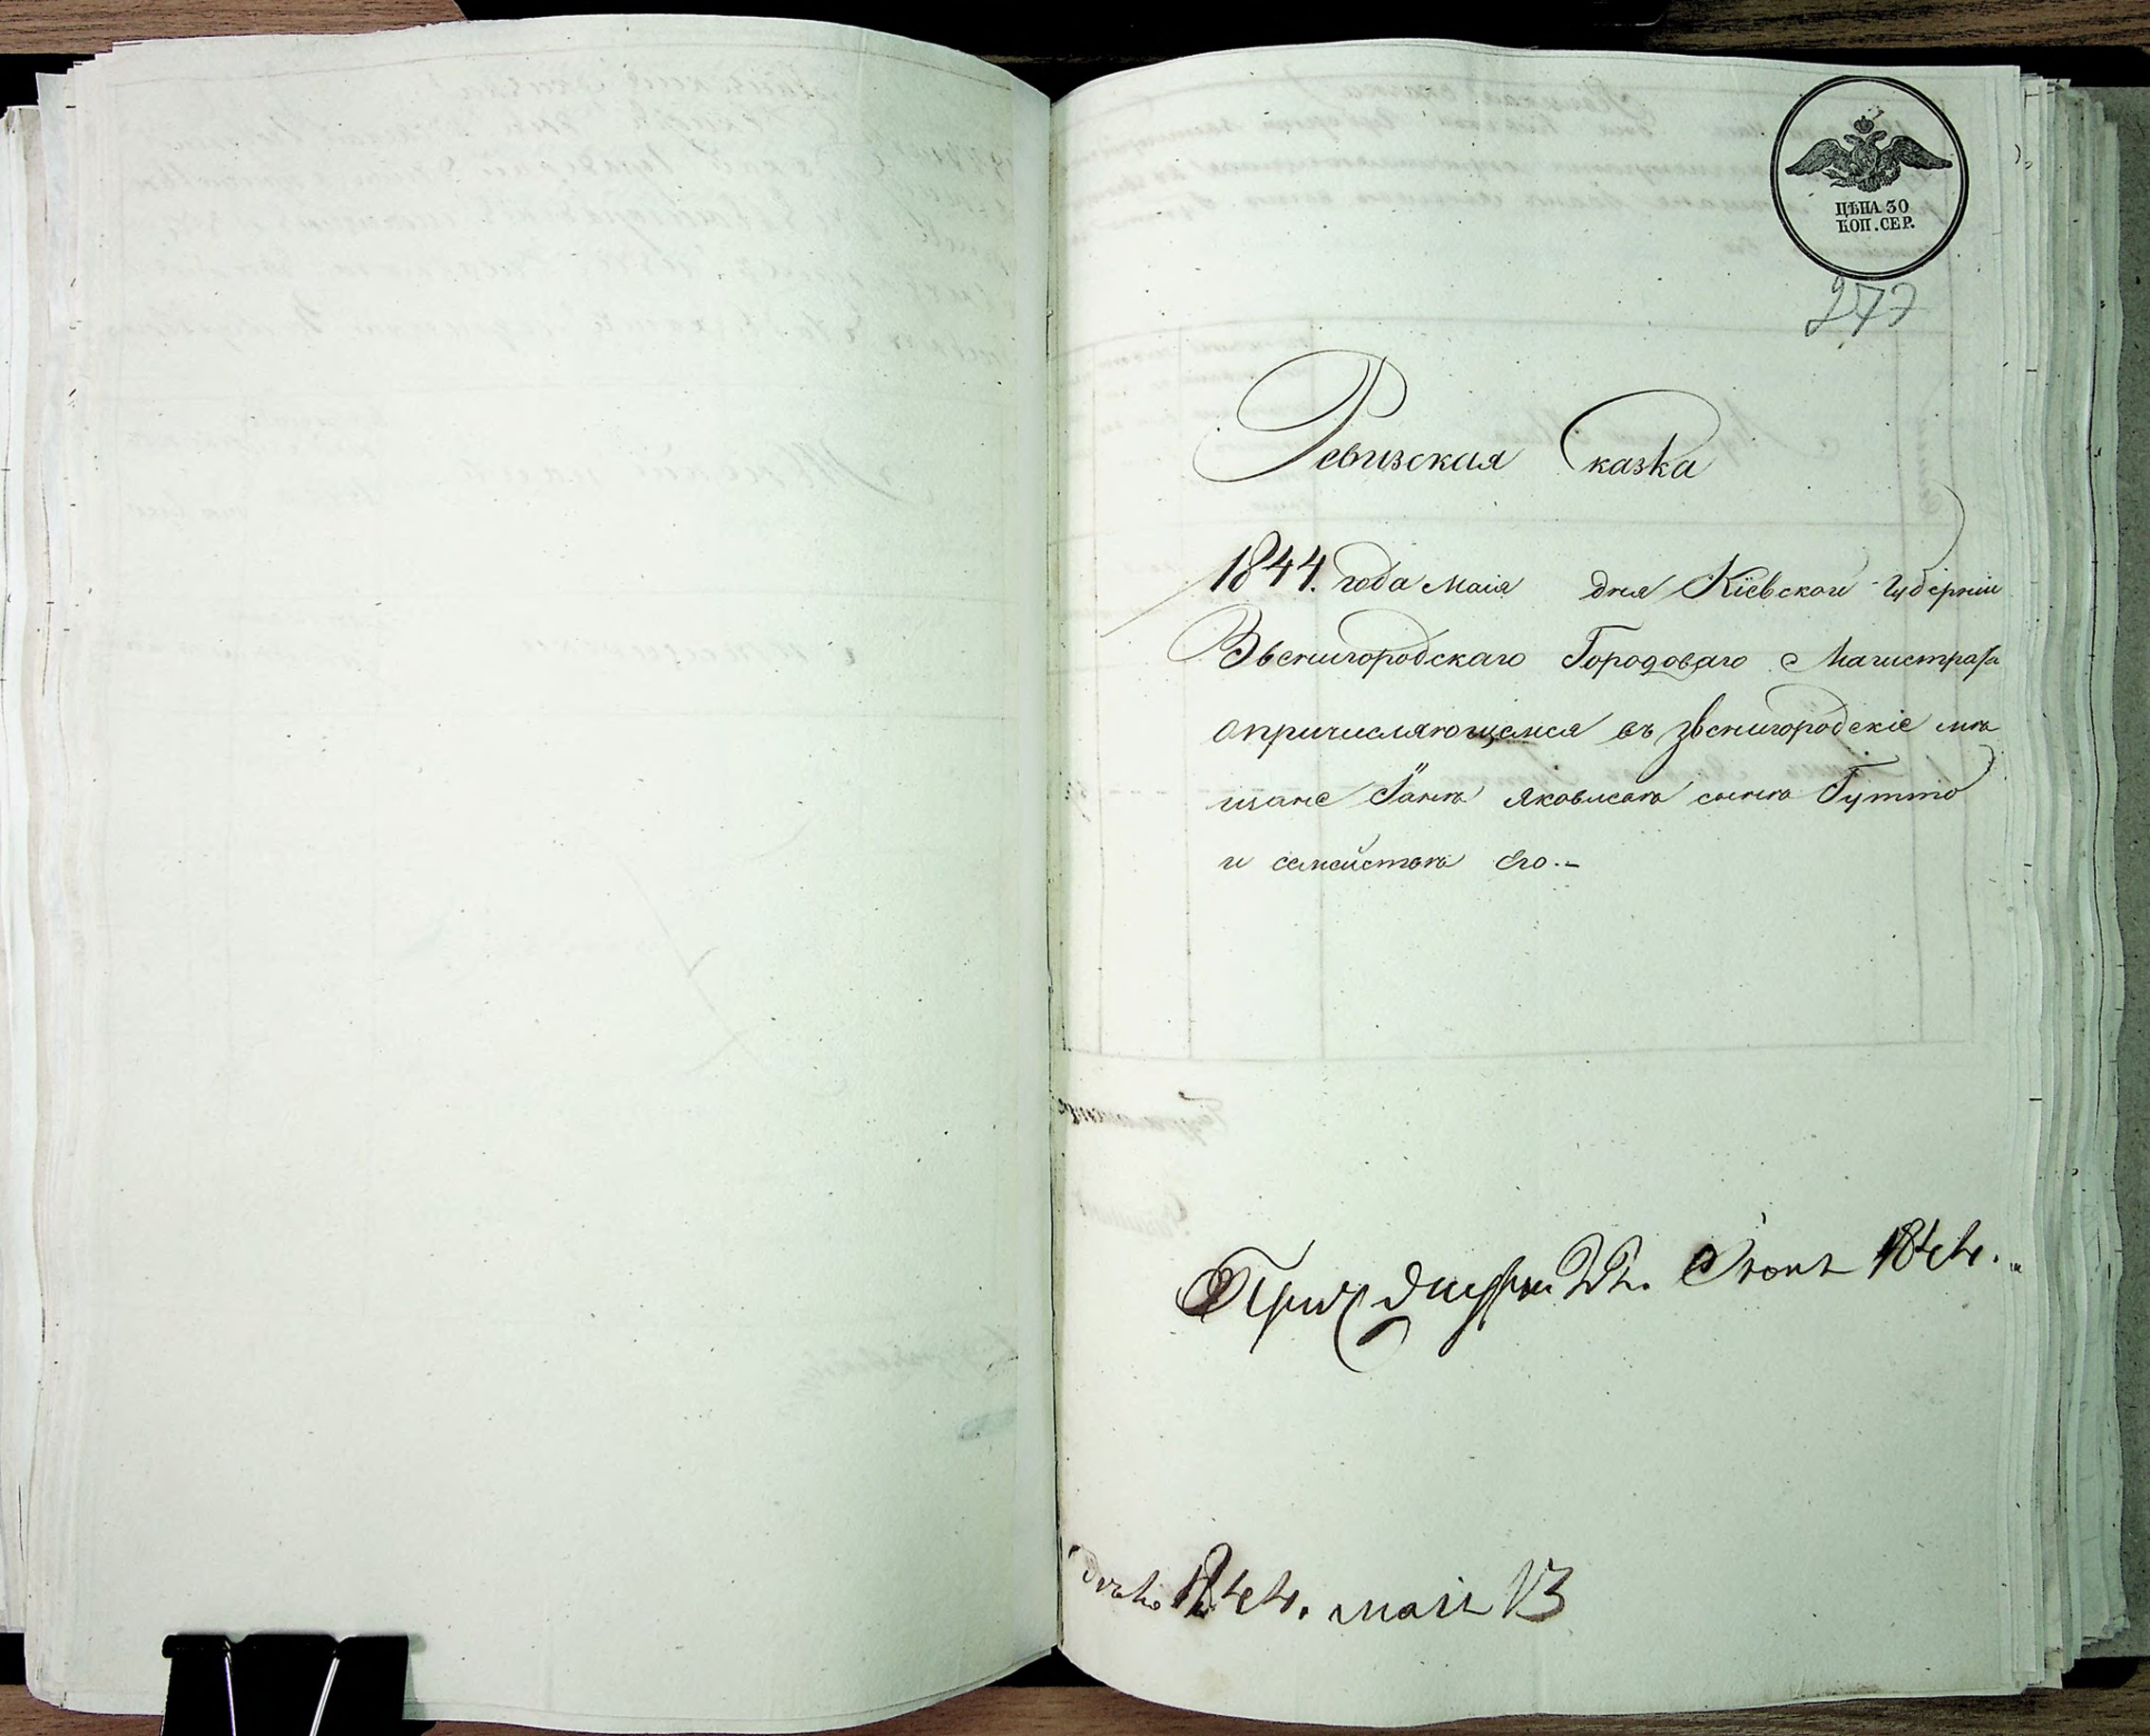 ЦѢНА 30
КОП. СЕР.
277
Ревизская Сказка
1844. года маія дня Кіевской Губерніи
Звенигородскаго Городоваго Магистрата
опричисляющемся въ звенигородскіе мѣ
щане Іанѣ Яковлевѣ сынѣ Гутто
и семействѣ Его.-
1844.
1844. маія 13